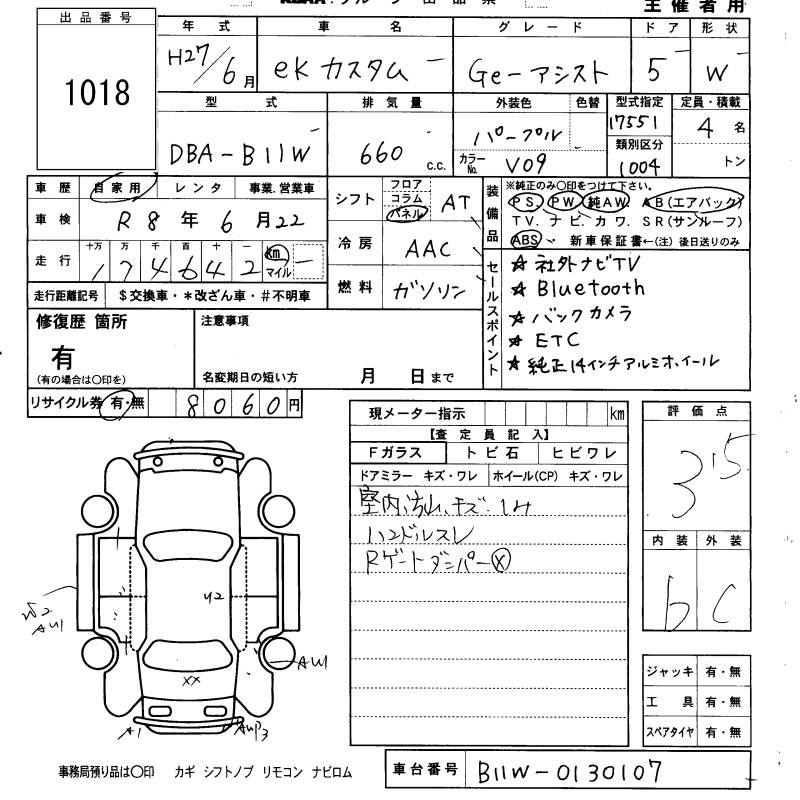 出品番号
1018
主催者用
年式 車名 グレード ドア 形状
H27/6月 eKカスタム Ge-アシスト 5 W
型式 排気量 外装色 色替 型式指定 定員・積載
DBA-B11W 660 c.c. パープル 17551 4名
カラーNo. V09 類別区分 1004 トン
車歴 自家用 レンタ 事業.営業車
車検 R8年6月22
走行 十万 万 千 百 十 一
174642 km マイル
走行距離記号 $交換車・*改ざん車・#不明車
シフト フロア コラム パネル AT
冷房 AAC
燃料 ガソリン
装備品 ※純正のみ○印をつけて下さい。
PS. PW. 純AW. AB(エアバック)
TV. ナビ. カワ. SR(サンルーフ)
ABS. 新車保証書←(注)後日送りのみ
セールスポイント
★ 社外ナビTV
★ Bluetooth
★ バックカメラ
★ ETC
★ 純正14インチアルミホイール
修復歴 箇所
有
(有の場合は○印を)
注意事項
名変期日の短い方 月 日まで
リサイクル券 有・無 8060円
現メーター指示 km
【査定員記入】
Fガラス トビ石 ヒビワレ
ドアミラー キズ・ワレ ホイール(CP) キズ・ワレ
室内汚れ、キズ、シミ
ハンドルスレ
Rゲートダンパー×
評価点
3.5
内装 外装
b C
ジャッキ 有・無
工具 有・無
スペアタイヤ 有・無
U2
W2
AU1
AW1
XX
A1
事務局預り品は○印 カギ シフトノブ リモコン ナビロム
車台番号 B11W-0130107